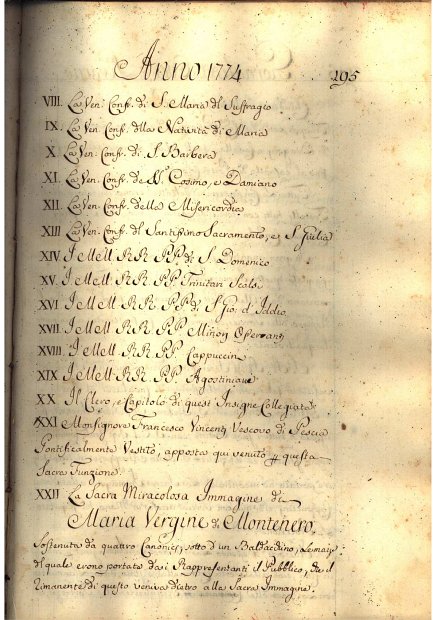 Anno 1774
195
VIII. La Ven. Conf. di S. Maria del Suffragio
IX. La Ven. Conf. della Natività di Maria
X. La Ven. Conf. di S. Barbera
XI. La Ven. Conf. de S. Cosimo, e Damiano
XII. La Ven. Conf. della Misericordia
XIII La Ven. Conf. del Santissimo Sacramento, e S. Giulia
XIV I MM. RR. PP. di S. Domenico
XV. I MM. RR. PP. Trinitari Scalzi
XVI I MM. RR. PP. di S. Gio: d'Iddio
XVII. I MM. RR. PP Minori Osservanti
XVIII. I MM. RR. PP Cappuccini
XIX I MM. RR. PP. Agostiniani
XX Il Clero, e Capitolo di quest'Insigne Collegiata
XXI Monsignore Francesco Vincenti Vescovo di Pescia
Pontificalmente Vestito, apposta qui venuto p questa
Sacra Funzione.
XXII La Sacra Miracolosa Immagine di
Maria Vergine di Montenero.
Sostenuta da quattro Canonici, sotto d'un Baldacchino, le
del quale erono portate dasi Rappresentanti il Pubblico, ed il
Rimanente di questo veniva dietro alla Sacra Immagine.